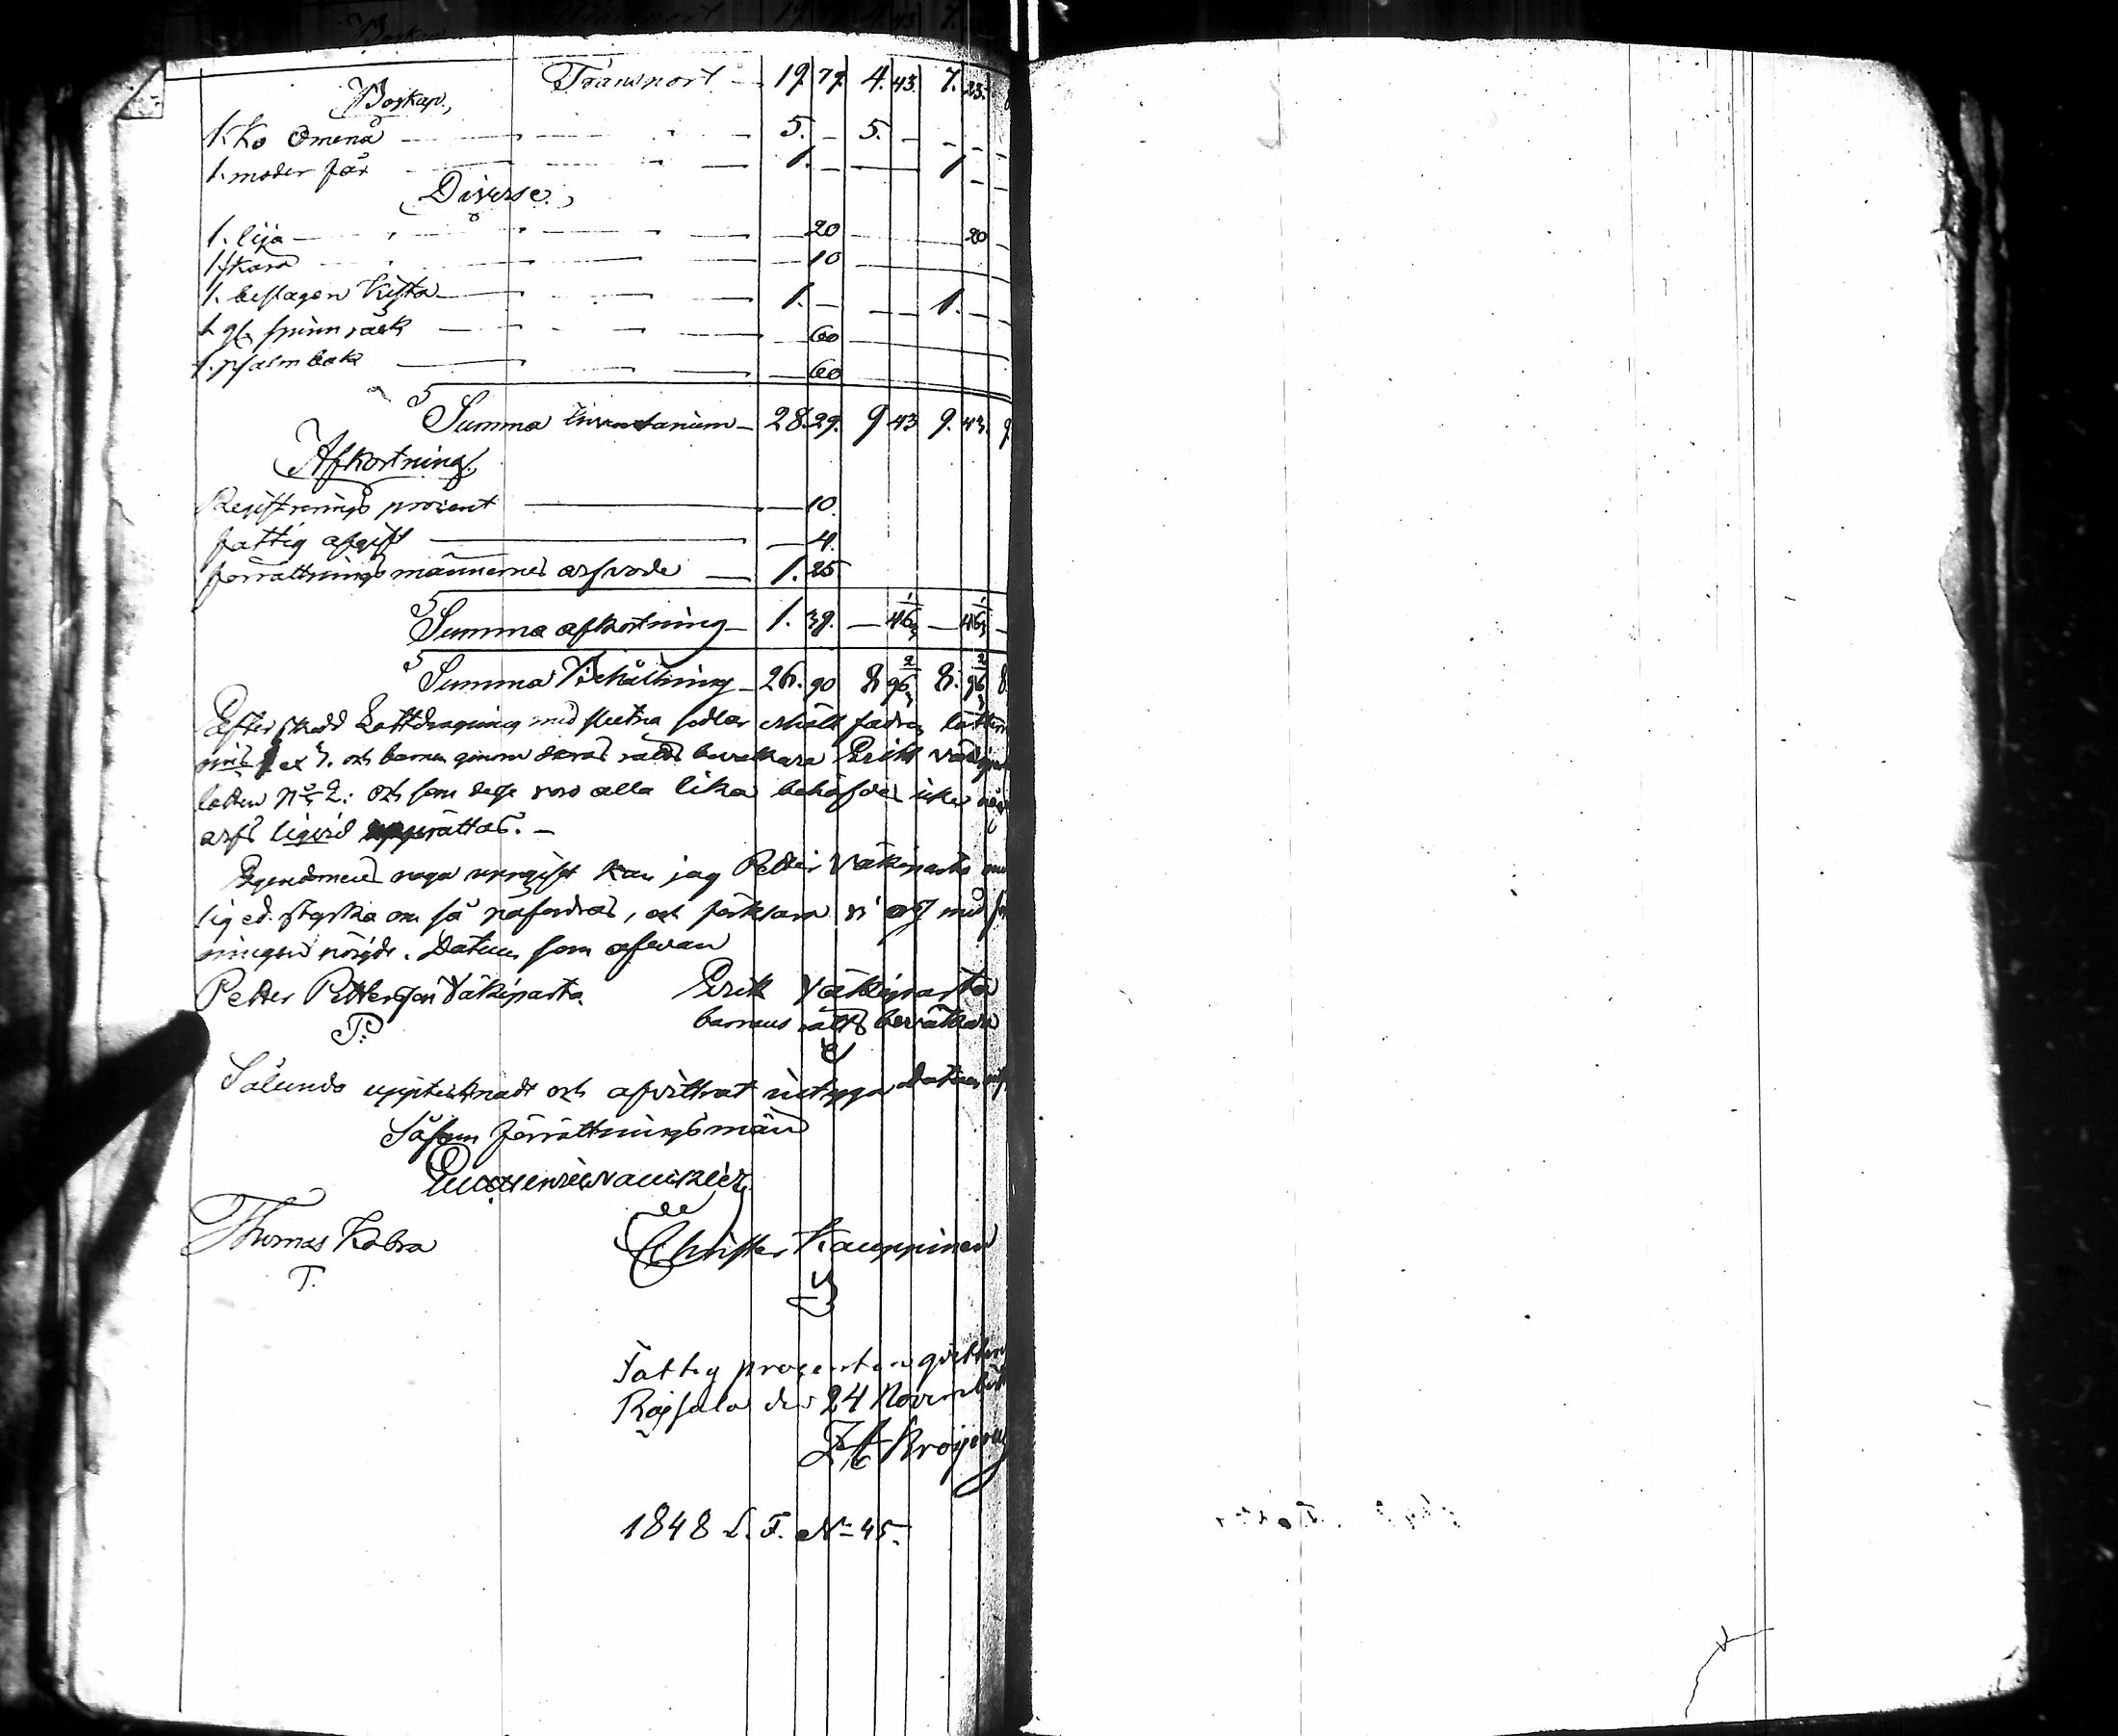 Transport — 19. 79. 4. 43. 7. 23.
Boskap,
1. Ko Omena — 5. — 5. —
1. moder får — 1. — 1 —
Diverse.
1. lija — 20 20
1. skara — 10
1. beslagen Kista — 1. — 1. —
1. spinn råck — 60
1. psalm bok — 60
Summa Inventarium — 28. 29. 9 43 9. 43.
Afkortning.
Registrerings procent — 10.
fattig afgift — 4.
förrättningsmännernes arfvode — 1. 25
Summa afkortning — 1. 39. — 46 1/3 — 46 1/3
Summa Behållning — 26. 90 8. 96 2/3 8. 96 2/3 8.
Efter skedd Lottdragning med slutna sedlar erhöll fadren
och barnen genom deras rätts bevakare Erik
lotten No 2: och som desse voro alla lika behöfdes icke
arfs liqvid upprättas. —
Egendomens noga uppgift kan jag Petter Väkiparta
lig ed styrka om så påfordras, och förklara vi oss med
ningen nöjde. Datum som ofvan
Petter Pettersson Väkiparta. Erik Väkiparta
P. barnens rätts bevakare
Sålunda uppteknadt och afvittrat intyga Datum
Såsom förrättningsmän
Thomas Kabra Christer Kauppinen
T.
Fattig procenten qvitteras
den 24 November
1848 L. F. No 45.